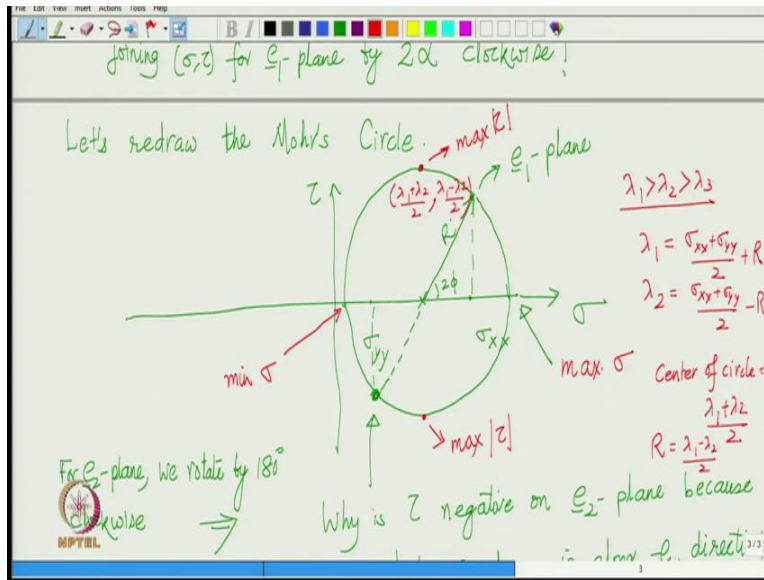 File Edit View Insert Actions Tools Help
B I
joining (σ,τ) for e₁-plane by 2α clockwise!
Let's redraw the Mohr's Circle.
max |τ|
e₁-plane
τ
(λ₁+λ₂/2, λ₁-λ₂/2)
R
2φ
σ
σyy
σxx
min σ
max. σ
max |τ|
λ₁ > λ₂ > λ₃
λ₁ = σxx+σyy/2 + R
λ₂ = σxx+σyy/2 - R
Center of circle =
λ₁+λ₂/2
R = λ₁-λ₂/2
For e₂-plane, we rotate by 180°
clockwise ⇒
Why is τ negative on e₂-plane because
is along e₁ directi
NPTEL
3/3
3